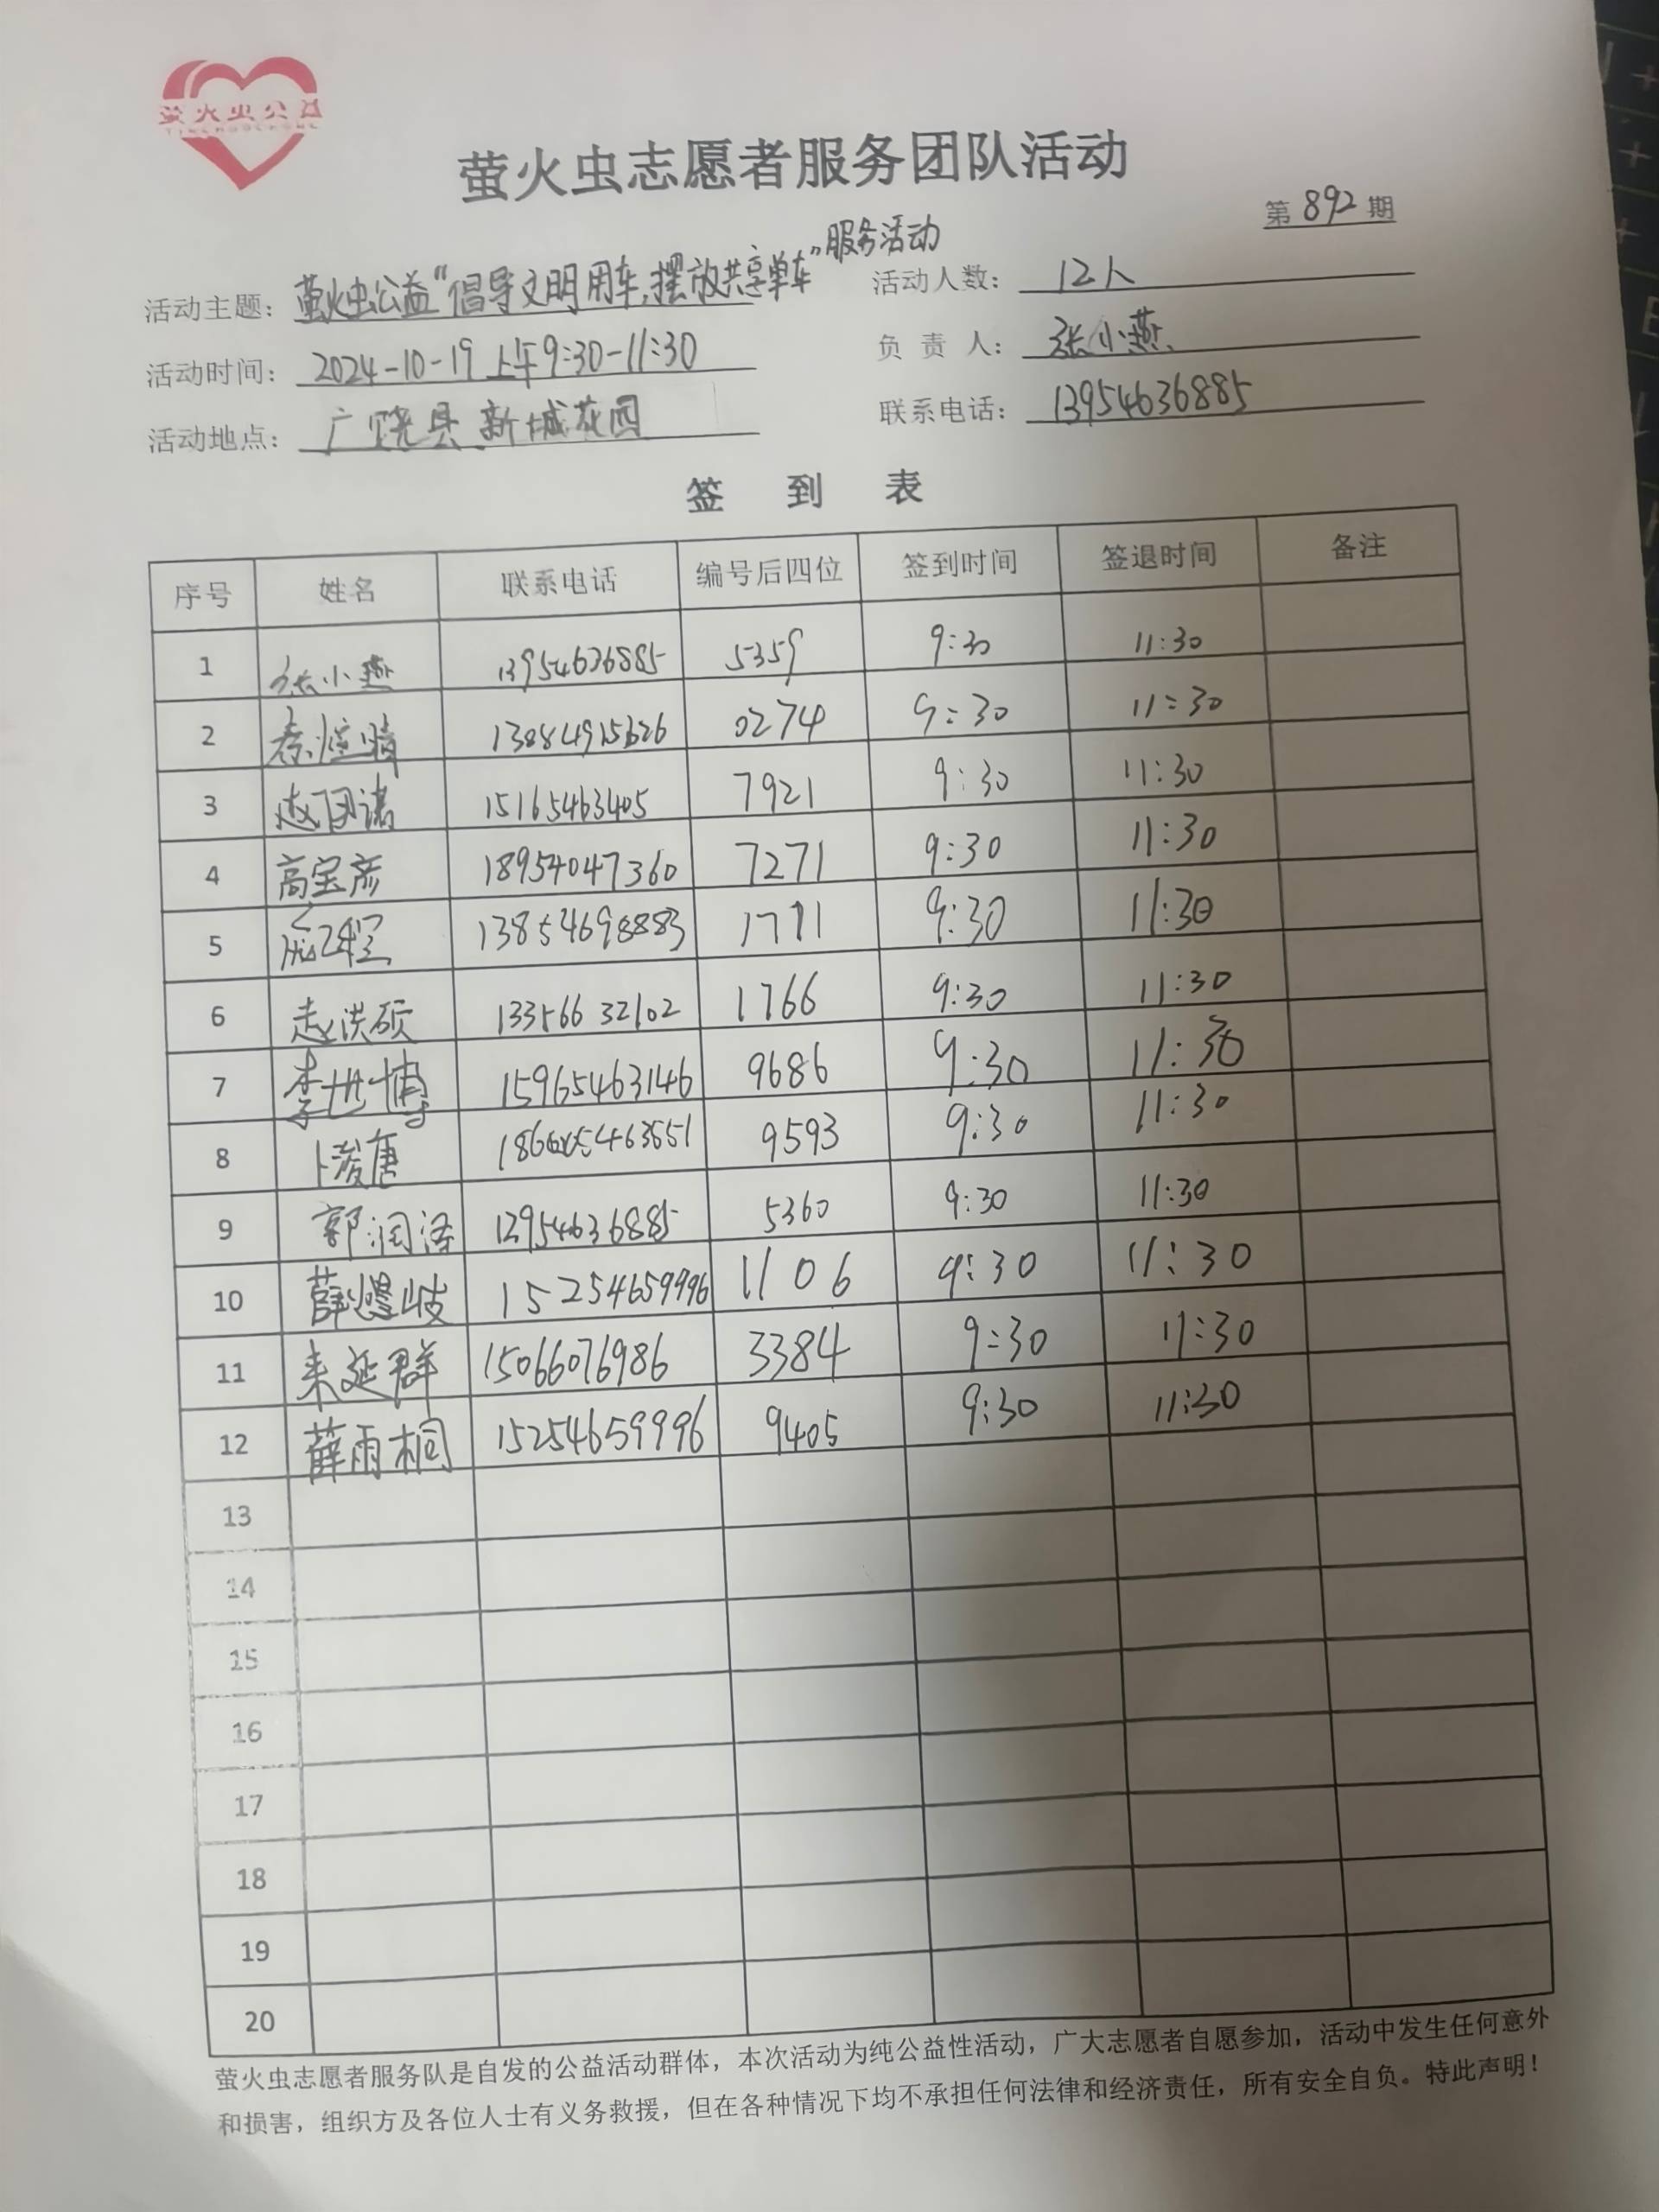 萤火虫公益
萤火虫志愿者服务团队活动
第892期
活动主题：萤火虫公益“倡导文明用车,摆放共享单车”服务活动
活动人数：12人
活动时间：2024-10-19 上午9:30-11:30
负责人：张小燕
活动地点：广饶县新城花园
联系电话：13954636885
签到表
序号 姓名 联系电话 编号后四位 签到时间 签退时间 备注
1 张小燕 13954636885 5359 9:30 11:30
2 0274 9:30 11:30
3 15165463405 7921 9:30 11:30
4 高宝彦 18954047360 7271 9:30 11:30
5 13854698883 1711 9:30 11:30
6 赵洪硕 13356632102 1766 9:30 11:30
7 李世博 15965463146 9686 9:30 11:30
8 卜浚唐 9593 9:30 11:30
9 郭润泽 5360 9:30 11:30
10 15254659996 1106 9:30 11:30
11 来延群 15066076986 3384 9:30 11:30
12 薛雨桐 15254659996 9405 9:30 11:30
13
14
15
16
17
18
19
20
萤火虫志愿者服务队是自发的公益活动群体，本次活动为纯公益性活动，广大志愿者自愿参加，活动中发生任何意外
和损害，组织方及各位人士有义务救援，但在各种情况下均不承担任何法律和经济责任，所有安全自负。特此声明！